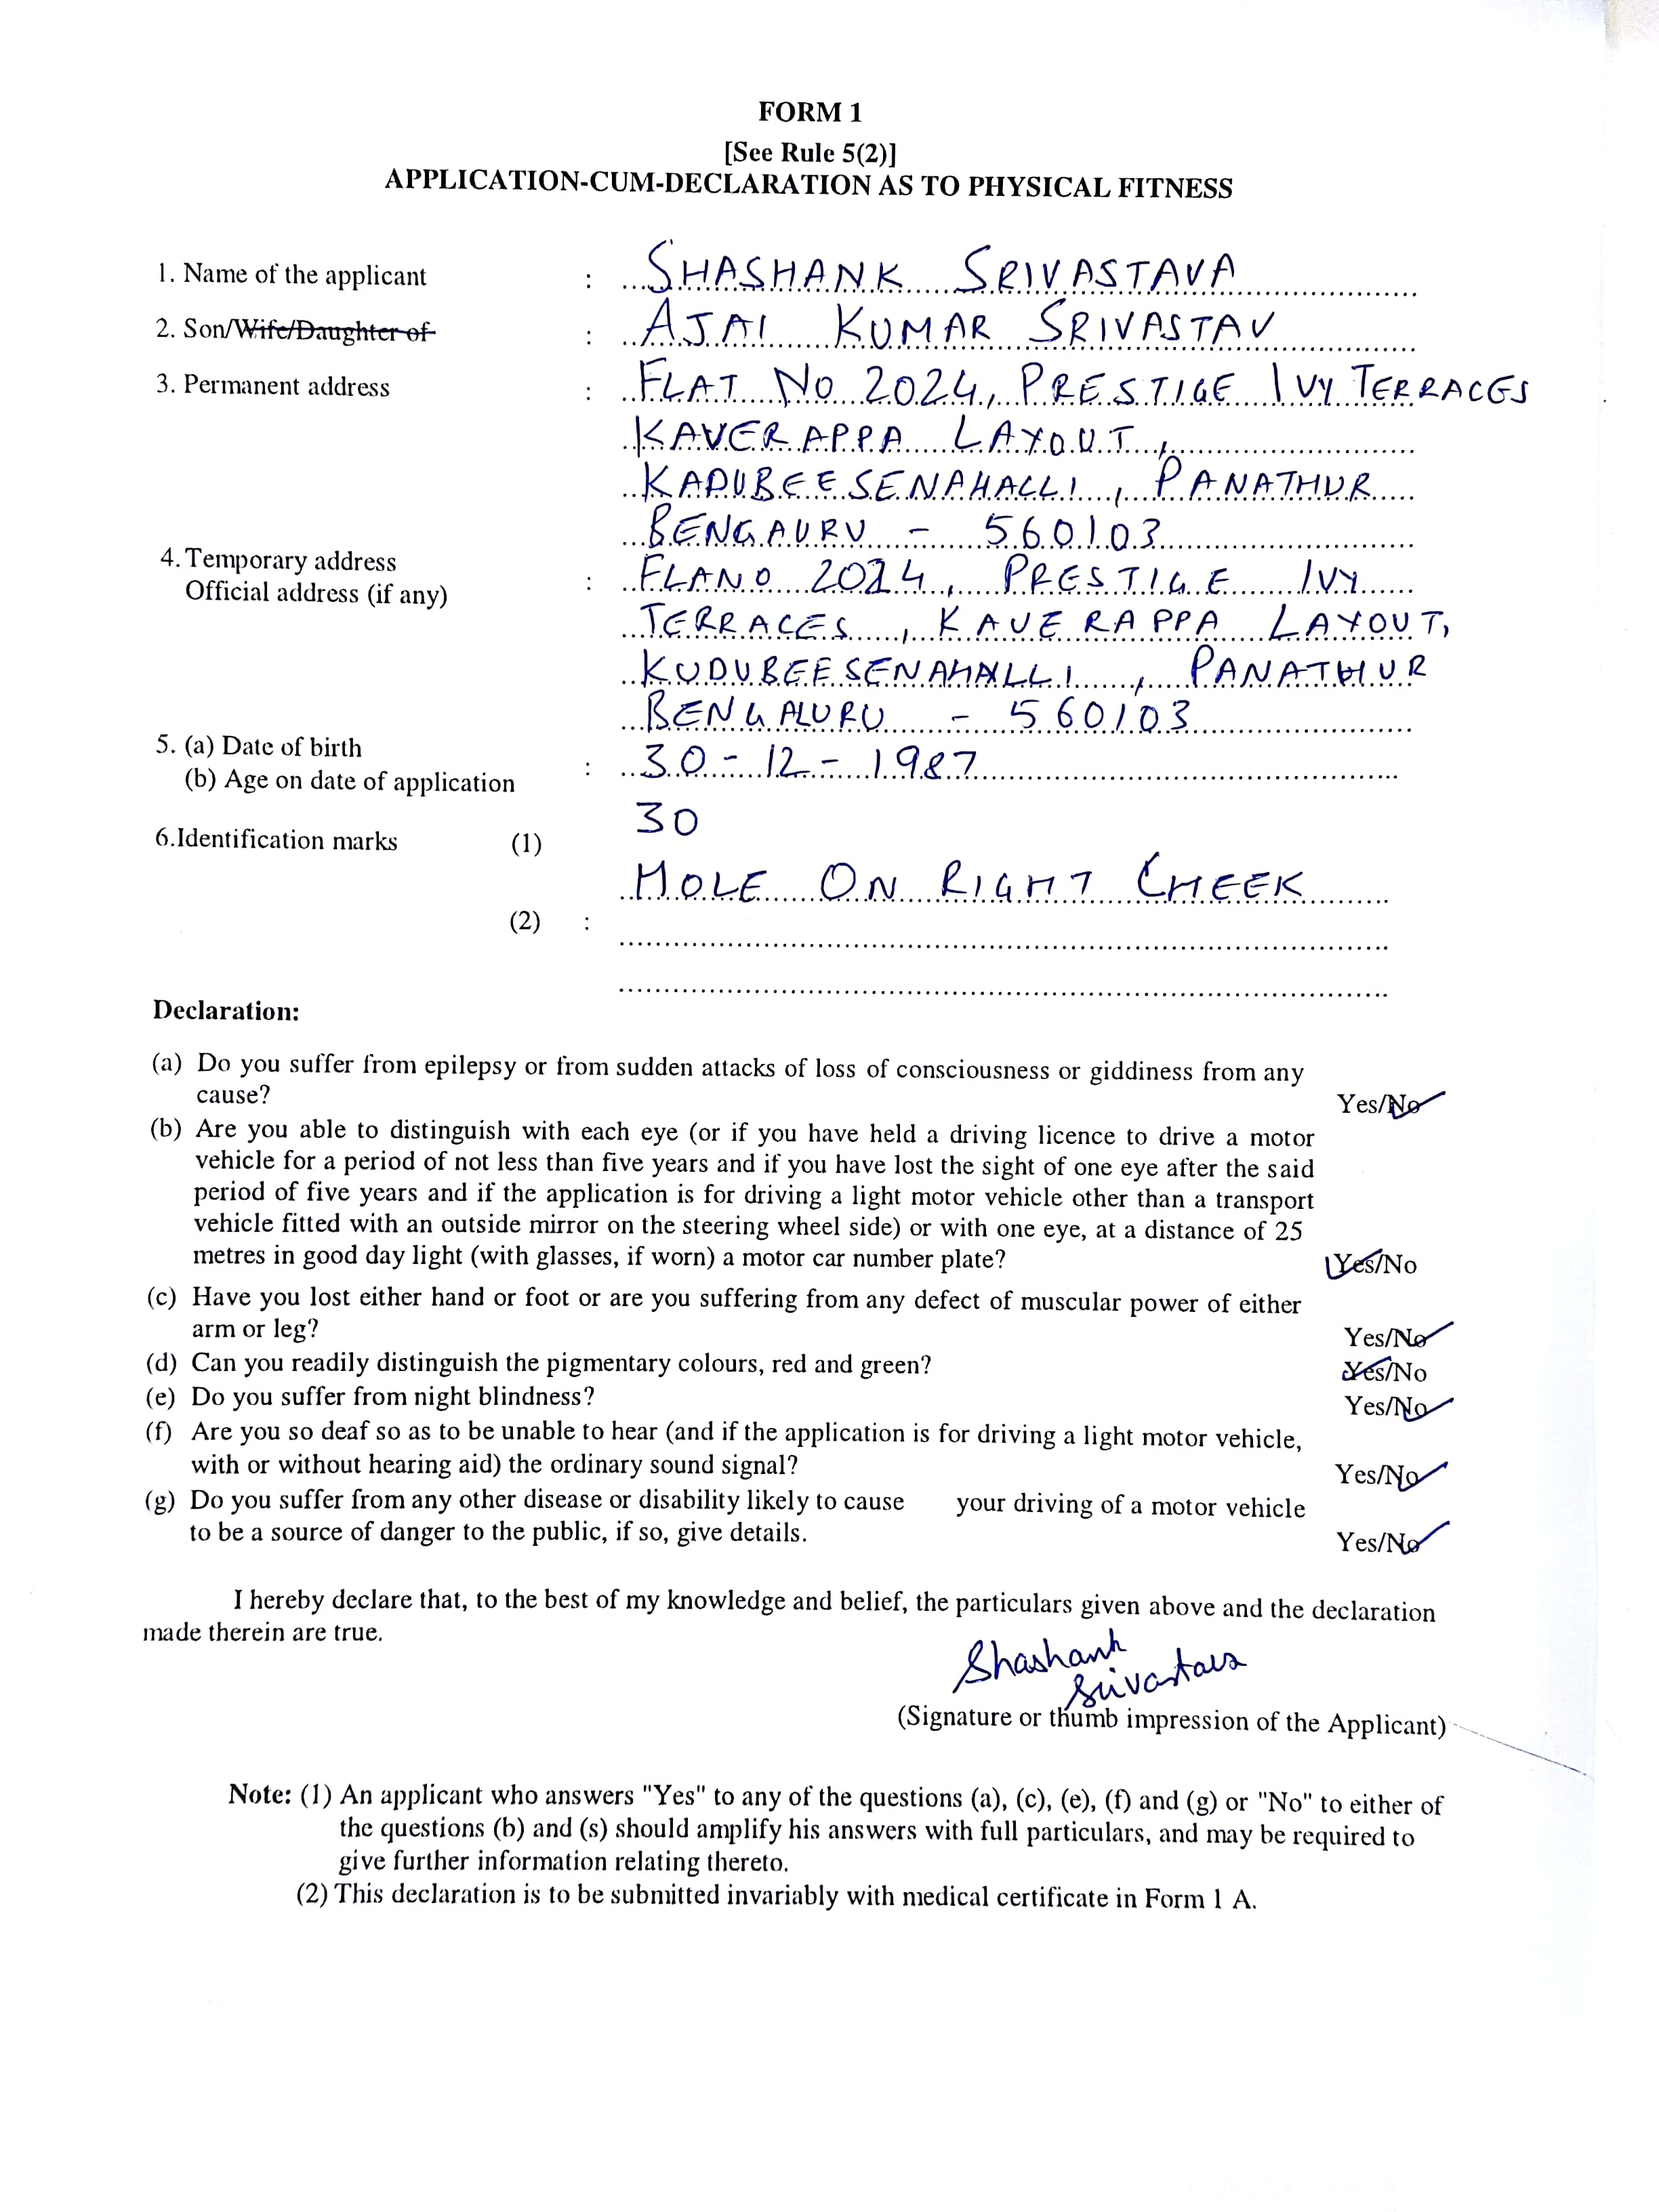 FORM 1
[See Rule 5(2)]
APPLICATION-CUM-DECLARATION AS TO PHYSICAL FITNESS
1. Name of the applicant : SHASHANK SRIVASTAVA
2. Son/Wife/Daughter of : AJAI KUMAR SRIVASTAV
3. Permanent address : FLAT No 2024, PRESTIGE IVY TERRACES
KAVERAPPA LAYOUT,
KADUBEESENAHALLI, PANATHUR
BENGAURU - 560103
4. Temporary address
Official address (if any) : FLANO 2024, PRESTIGE IVY
TERRACES, KAVERAPPA LAYOUT,
KUDUBEESENAHALLI, PANATHUR
BENGALURU - 560103
5. (a) Date of birth : 30-12-1987
(b) Age on date of application
30
6.Identification marks (1)
MOLE ON RIGHT CHEEK
(2) :
Declaration:
(a) Do you suffer from epilepsy or from sudden attacks of loss of consciousness or giddiness from any
cause? Yes/No
(b) Are you able to distinguish with each eye (or if you have held a driving licence to drive a motor
vehicle for a period of not less than five years and if you have lost the sight of one eye after the said
period of five years and if the application is for driving a light motor vehicle other than a transport
vehicle fitted with an outside mirror on the steering wheel side) or with one eye, at a distance of 25
metres in good day light (with glasses, if worn) a motor car number plate? Yes/No
(c) Have you lost either hand or foot or are you suffering from any defect of muscular power of either
arm or leg? Yes/No
(d) Can you readily distinguish the pigmentary colours, red and green? Yes/No
(e) Do you suffer from night blindness? Yes/No
(f) Are you so deaf so as to be unable to hear (and if the application is for driving a light motor vehicle,
with or without hearing aid) the ordinary sound signal? Yes/No
(g) Do you suffer from any other disease or disability likely to cause your driving of a motor vehicle
to be a source of danger to the public, if so, give details. Yes/No
I hereby declare that, to the best of my knowledge and belief, the particulars given above and the declaration
made therein are true.
Shashank
Srivastava
(Signature or thumb impression of the Applicant)
Note: (1) An applicant who answers "Yes" to any of the questions (a), (c), (e), (f) and (g) or "No" to either of
the questions (b) and (s) should amplify his answers with full particulars, and may be required to
give further information relating thereto.
(2) This declaration is to be submitted invariably with medical certificate in Form 1 A.